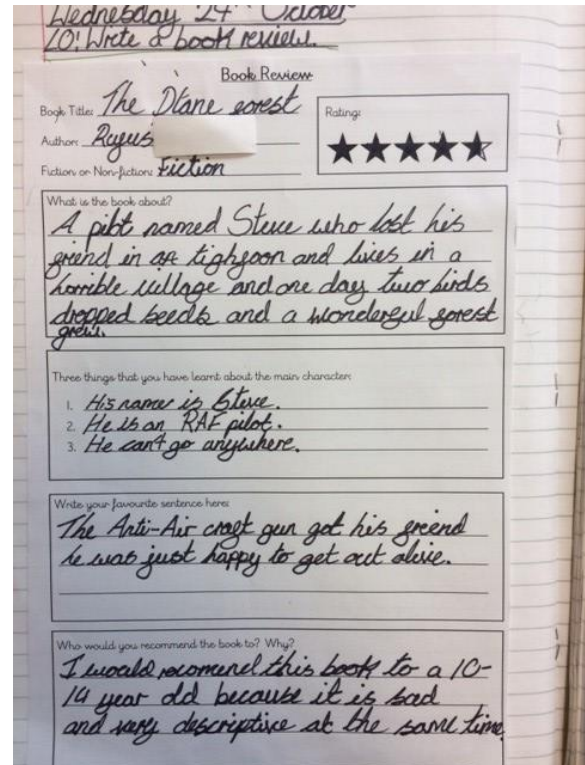 Wednesday 24th October
LO: Write a book review.
Book Review
Book Title: The Plane forest
Rating:
Author: Rufus
Fiction or Non-fiction: Fiction
What is the book about?
A pilot named Steve who lost his
friend in a tighyoon and lives in a
horrible village and one day two birds
dropped seeds and a wonderful forest
grew.
Three things that you have learnt about the main character:
1. His name is Steve.
2. He is an RAF pilot.
3. He can't go anywhere.
Write your favourite sentence here:
The Anti-Air craft gun got his friend
he was just happy to get out alive.
Who would you recommend the book to? Why?
I would recomend this book to a 10-
14 year old because it is sad
and very descriptive at the same time.